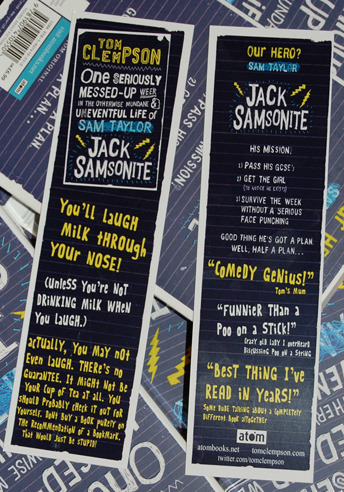 TOM
CLEMPSON
ONE SERIOUSLY
MESSED-UP WEEK
IN THE OTHERWISE MUNDANE &
UNEVENTFUL LIFE OF
SAM TAYLOR
JACK
SAMSONITE
YOU'LL LAUGH
MILK THROUGH
YOUR NOSE!
(UNLESS YOU'RE NOT
DRINKING MILK WHEN
YOU LAUGH.)
ACTUALLY, YOU MAY NOT
EVEN LAUGH. THERE'S NO
GUARANTEE. IT MIGHT NOT BE
YOUR CUP OF TEA AT ALL. YOU
SHOULD PROBABLY CHECK IT OUT FOR
YOURSELF. DON'T BUY A BOOK PURELY ON
THE RECOMMENDATION OF A BOOKMARK.
THAT WOULD JUST BE STUPID!
OUR HERO?
SAM TAYLOR
JACK
SAMSONITE
HIS MISSION:
1) PASS HIS GCSE'S
2) GET THE GIRL
3) SURVIVE THE WEEK
WITHOUT A SERIOUS
FACE PUNCHING
GOOD THING HE'S GOT A PLAN.
WELL, HALF A PLAN...
"COMEDY GENIUS!"
TOM'S MUM
"FUNNIER THAN A
POO ON A STICK!"
CRAZY OLD LADY I OVERHEARD
DISCUSSING POO ON A STRING
"BEST THING I'VE
READ IN YEARS!"
SOME DUDE TALKING ABOUT A COMPLETELY
DIFFERENT BOOK ALTOGETHER
atom
atombooks.net tomclempson.com
twitter.com/tomclempson